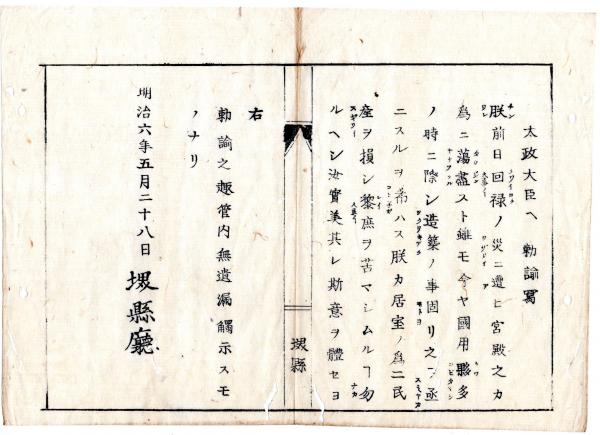 太政大臣ヘ 勅諭寫
朕前日回禄ノ災ニ遭ヒ宮殿之カ
為ニ蕩盡スト雖モ今ヤ國用夥多
ノ時ニ際シ造築ノ事固リ之ヲ亟
ニスルヲ希ハス朕カ居室ノ為ニ民
産ヲ損シ黎庶ヲ苦マシムルヿ勿
ルヘシ汝實美其レ斯意ヲ體セヨ
堺縣
右
勅諭之趣管内無遺漏觸示スモ
ノナリ
明治六年五月二十八日 堺縣廳